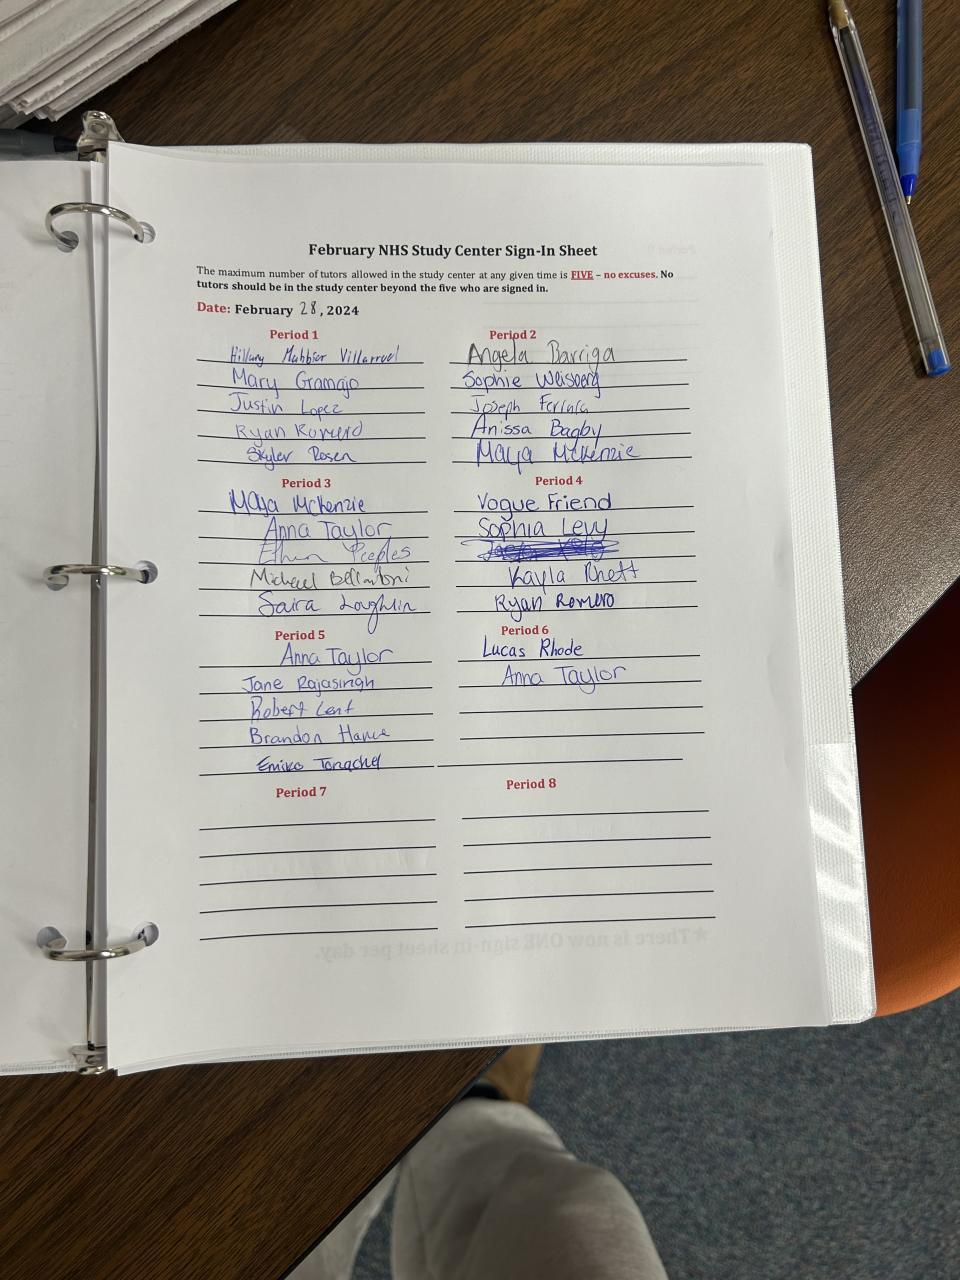 February NHS Study Center Sign-In Sheet
The maximum number of tutors allowed in the study center at any given time is FIVE – no excuses. No
tutors should be in the study center beyond the five who are signed in.
Date: February 28, 2024
Period 1
Hillary Villarruel
Mary Gramajo
Justin Lopez
Ryan Romero
Skyler Rosen
Period 2
Angela Barriga
Sophie Weisberg
Joseph
Anissa Bagby
Maya McKenzie
Period 3
Maya McKenzie
Anna Taylor
Ethan Peeples
Michael Bellantoni
Saira Loughlin
Period 4
Vogue Friend
Sophia Levy
Kayla Rhett
Ryan Romero
Period 5
Anna Taylor
Jane Rajasingh
Robert Lent
Brandon
Emiko
Period 6
Lucas Rhode
Anna Taylor
Period 7
Period 8
★There is now ONE sign-in sheet per day.